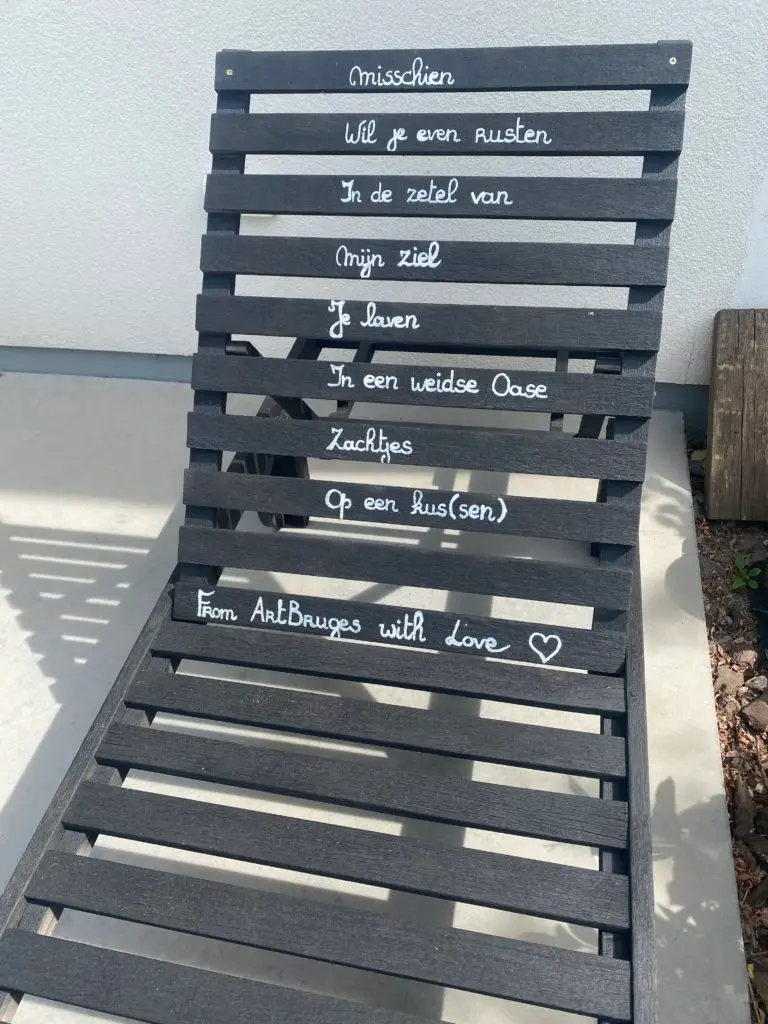 misschien
Wil je even rusten
In de zetel van
Mijn ziel
Je laven
In een weidse Oase
Zachtjes
Op een kus(sen)
From ArtBruges with Love ♡